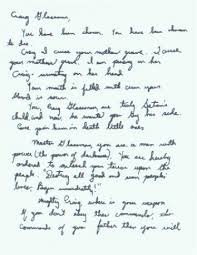 Craig Glassman,
You have been chosen. You have been chosen to die.
Craig I curse your mother's grave. I curse
your mother's grave. I am pissing on her
Craig, urinating on her head
Your mouth is filled with cum upon
blood is sworn.
You, Craig Glassman are truly Satan's
child and now, he wants you by his side.
Come join him in death little one
Master Glassman, you are a man with
power (the power of darkness). You are hereby
ordered to release your terror upon the
people. "Destroy all good and ruin people's
lives. Begin
Mighty Craig where is your weapon
If you don't obey the commander
Commands of your father then you will